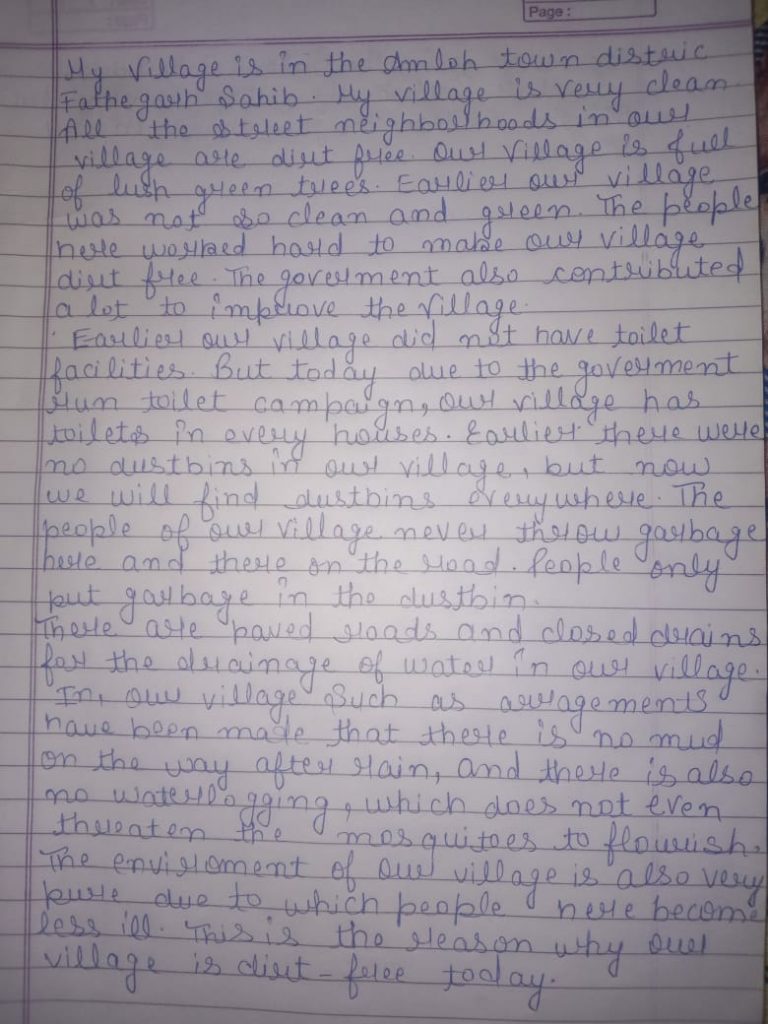 Page:
My Village is in the Amloh town distric
Fathegarh Sahib. My village is very clean
All the street neighborhoods in our
village are dirt free. Our Village is full
of lush green trees. Earlier our village
was not so clean and green. The people
here worked hard to make our village
dirt free. The goverment also contributed
a lot to improve the Village.
Earlier our village did not have toilet
facilities. But today due to the goverment
run toilet campaign, our village has
toilets in every houses. Earlier there were
no dustbins in our village, but now
we will find dustbins everywhere. The
people of our village never throw garbage
here and there on the road. People only
put garbage in the dustbin.
There are paved roads and closed drains
for the drainage of water in our village.
In, our village Such as arragements
have been made that there is no mud
on the way after rain, and there is also
no waterlogging, which does not even
threaten the mosquitoes to flourish.
The enviroment of our village is also very
pure due to which people here become
less ill. This is the reason why our
village is dirt-free today.